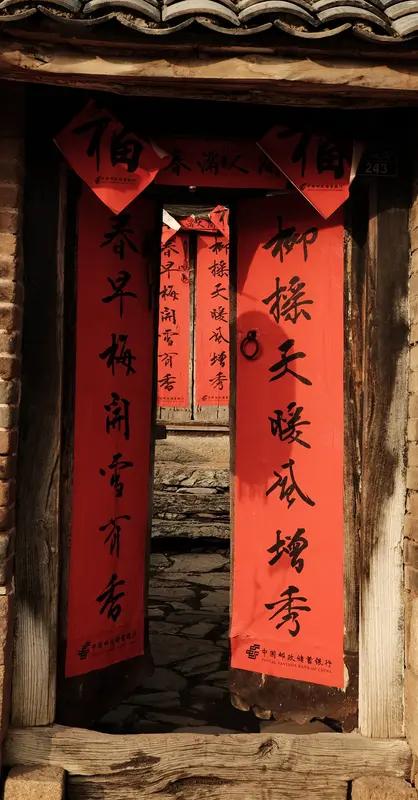 福
福
春满人间
243
柳摇天暖风增秀
中国邮政储蓄银行
POSTAL SAVINGS BANK OF CHINA
春早梅開雪有香
中国邮政储蓄银行
柳摇天暖风增秀
春早梅開雪有香